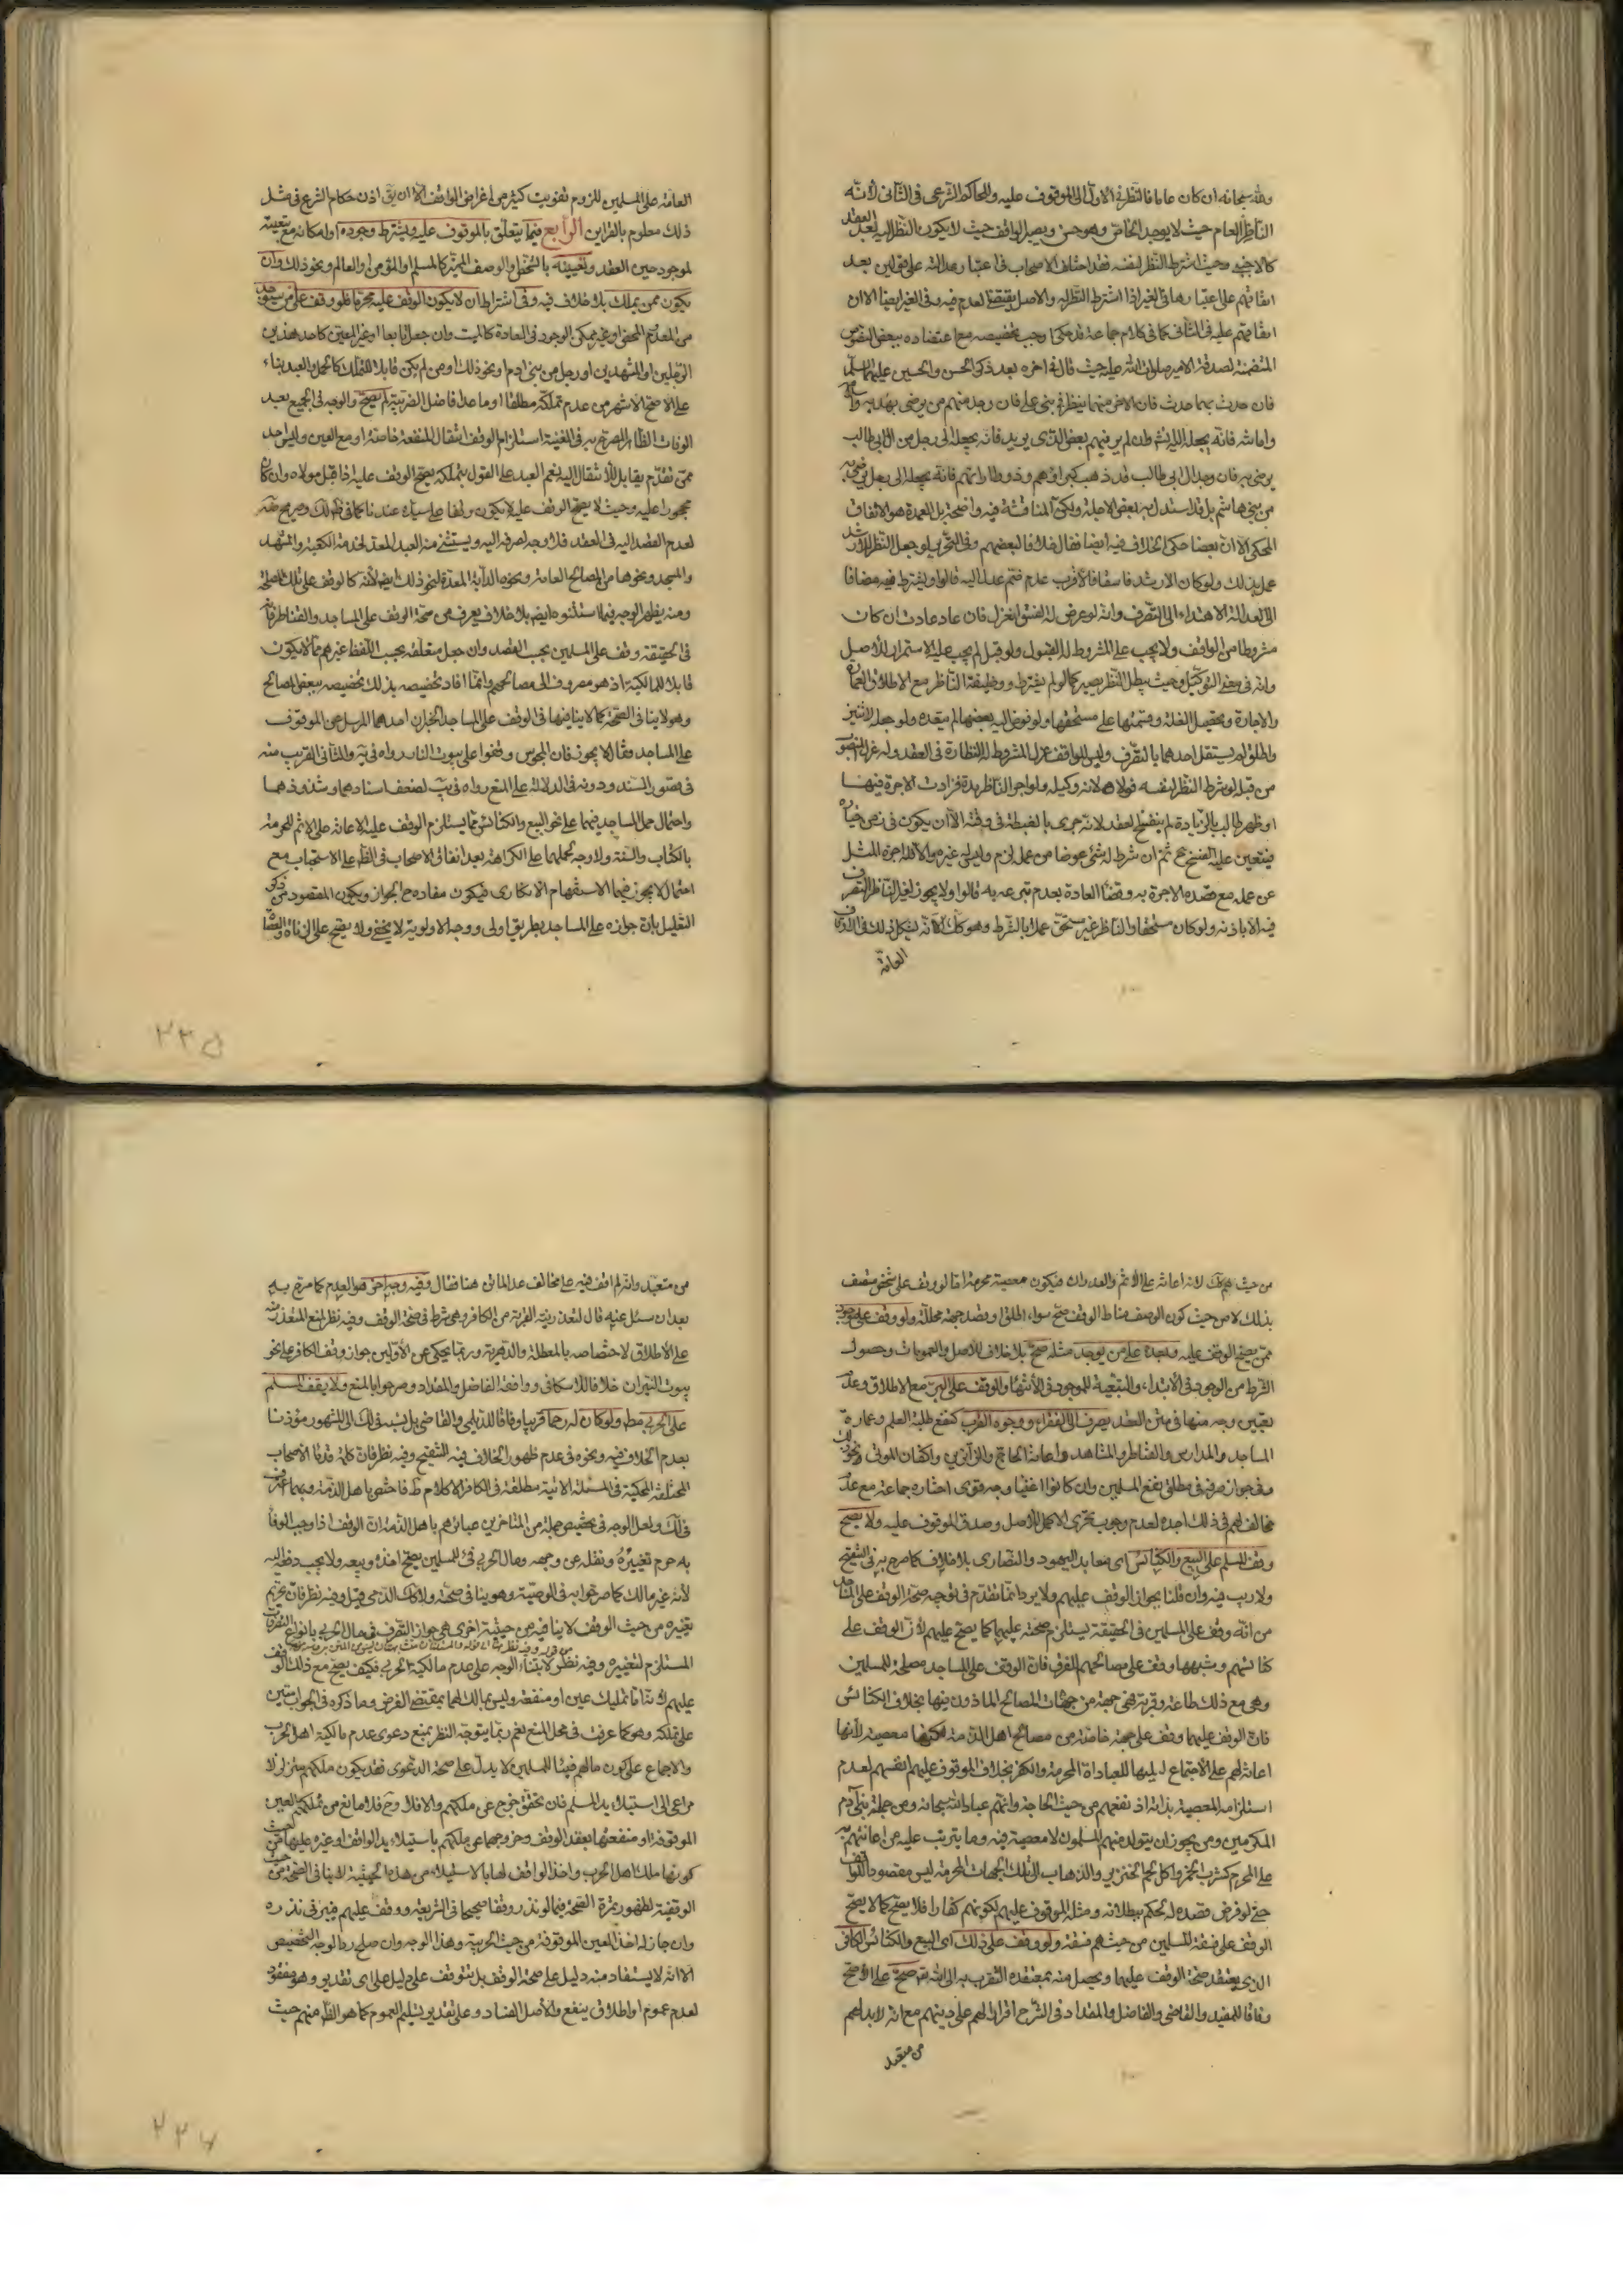 ولله سبحانه ان كان عاما فالنظر في الاول الى الموقوف عليه وللحاكم الشرعي في الثاني لانه
الناظر العام حيث لا يوجد الخاص وهو حسن ويصير الواقف حيث لا يكون النظر اليه بعد العقد
كالاجنبي وحيث اشترط النظر لنفسه فقد اختلف الاصحاب في اعتبار عدالته على قولين بعد
اتفاقهم على اعتبارها في الغير اذا اشترط النظر له والاصل يقتضي العدم فيه وفي الغير ايضا الا ان
اتفاقهم عليه في الثاني كما في كلام جماعة قد حكي اوجب تخصيصه مع اعتضاده ببعض النصوص
المتضمنة لصدقة الامير صلوات الله عليه حيث قال في اخره بعد ذكر الحسن والحسين عليهما السلم
فان حدث بهما حدث فان الاخر منهما ينظر في بني علي فان وجد منهم من يرضى بهديه واسلامه
وامانته فانه يجعله اليه انشاء وان لم ير فيهم بعض الذي يريد فانه يجعله الى رجل من ال ابي طالب
يرضى به فان وجد ال ابي طالب قد ذهب كبراؤهم وذووا رائهم فانه يجعله الى رجل يرضى به
من بني هاشم بل قد استدل به بعض الاجلة ولكن المناقشة فيه واضحة بل العمدة هو الاتفاق
المحكي الا ان بعضا حكى الخلاف فيه ايضا فقال خلافا لبعضهم وفي التحرير لو جعل النظر للارشد
عمل بذلك ولو كان الارشد فاسقا فالاقرب عدم ضم عدل اليه قالوا ويشترط فيه مضافا
الى العدالة الاهتداء الى التصرف وانه لو عرض له الفسق انعزل فان عاد عادت ان كان
مشروطا من الواقف ولا يجب على المشروط له القبول ولو قبل لم يجب عليه الاستمرار للاصل
وانه في معنى التوكيل وحيث يبطل النظر يصير كما لو لم يشترط ووظيفة الناظر مع الاطلاق العمارة
والاجارة وتحصيل الغلة وقسمتها على مستحقها ولو فوض اليه بعضها لم يتعده ولو جعله لاثنين
واطلق لم يستقل احدهما بالتصرف وليس للواقف عزل المشروط له النظارة في العقد وله عزل المنصوب
من قبله لو شرط النظر لنفسه فولاه لانه وكيله ولو اجر الناظر مدة فزادت الاجرة فيها
او ظهر طالب بالزيادة لم ينفسخ العقد لانه جرى بالغبطة في وقته الا ان يكون في زمن خياره
فيتعين عليه الفسخ ح ثم ان شرط له شئ عوضا من عمله لزم وليس له غيره والا فله اجرة المثل
عن عمله مع قصده الاجرة به وقضاء العادة بعدم تبرعه به قالوا ولا يجوز لغير الناظر التصرف
فيه الا باذنه ولو كان مستحقا والناظر غير مستحق عملا بالشرط وهو كك الا انه يشكل ذلك في الاوقاف
العامة
العامة على المسلمين للزوم تفويت كثير من اغراض الواقف الا ان يق اذن حكام الشرع في مثل
ذلك معلوم بالقراين الرابع فيما يتعلق بالموقوف عليه ويشترط وجوده او امكانه مع تبعيته
لموجود حين العقد وتعيينه بالشخص او الوصف المميز كالمسلم او المؤمن او العالم ونحو ذلك وان
يكون ممن يملك بلا خلاف فيه وفي اشتراط ان لا يكون الوقف عليه محرما فلو وقف على من سيوجد
من المعدوم المحض او غير ممكن الوجود في العادة كالميت وان جعل تابعا او غير المعين كاحد هذين
الرجلين او المشهدين او رجل من بني ادم او نحو ذلك او من لم يكن قابلا للتملك كالحمل والعبد بناء
على الاصح الاشهر من عدم تملكه مطلقا او ما عدا فاضل الضريبة لم يصح والوجه في الجميع بعد
الوفاق الظاهر المصرح به في الغنية استلزام الوقف انتقال المنفعة خاصة او مع العين وليس احد
ممن تقدم بقابل للانتقال اليه نعم العبد على القول بتملكه يصح الوقف عليه اذا قبل مولاه وان كان
محجورا عليه وحيث لا يصح الوقف عليه لا يكون وقفا على سيده عندنا كما في لك وصريح ضه
لعدم القصد اليه في العقد فلا وجه لصرفه اليه ويستثنى منه العبد المعد لخدمة الكعبة والمشهد
والمسجد ونحوها من المصالح العامة ونحوه الدابة المعدة لنحو ذلك ايض لانه كالوقف على تلك المصلحة
ومنه يظهر الوجه فيما استثنوه ايض بلا خلاف يعرف من صحة الوقف على المساجد والقناطر فانه
في الحقيقة وقف على المسلمين بحسب القصد وان جعل متعلقه بحسب اللفظ غيرهم مما لا يكون
قابلا للمالكية اذ هو مصروف الى مصالحهم وانما افاد تخصيصه بذلك تخصيصه ببعض المصالح
وهو لا ينافي الصحة كما لا ينافيها في الوقف على المساجد الخبران احدهما المرسل عن الموقوف
على المساجد فقال لا يجوز فان المجوس وقفوا على بيوت النار رواه في يه والثاني القريب منه
في قصور السند ودونه في الدلالة على المنع رواه في يب لضعف اسنادهما وشذوذهما
واحتمال حمل المساجد فيهما على نحو البيع والكنائس مما يستلزم الوقف عليه الاعانة على الاثم المحرمة
بالكتاب والسنة ولا وجه لحملهما على الكراهة بعد اتفاق الاصحاب في الظ على الاستحباب مع
احتمال لا يجوز فيهما الاستفهام الانكاري فيكون مفاده ح الجواز ويكون المقصود من ذكر
التعليل بان جوازه على المساجد بطريق اولى ووجه الاولوية لا يخفى ولا يصح على الزناة والعصاة
من حيث هم كك لانه اعانة على الاثم والعدوان فيكون معصية محرمة اما لو وقف على شخص متصف
بذلك لا من حيث كون الوصف مناط الوقف صح سواء اطلق او قصد جهة محللة ولو وقف على موجود
ممن يصح الوقف عليه وبعده على من يوجد مثله صح بلا خلاف للاصل والعمومات وحصول
الشرط من الوجود في الابتداء والتبعية للموجود في الانتهاء والوقف على البر مع الاطلاق وعدم
تعيين وجه منها في متن العقد يصرف الى الفقراء ووجوه القرب كنفع طلبة العلم وعمارة
المساجد والمدارس والقناطر والمشاهد واعانة الحاج والزائرين واكفان الموتى ونحو ذلك
وفي جواز صرفه في مطلق نفع المسلمين وان كانوا اغنياء وجه قوي اختاره جماعة مع عدم
مخالف لهم في ذلك اجده لعدم وجوب تحري الاكمل للاصل وصدق الموقوف عليه ولا يصح
وقف المسلم على البيع والكنائس اى معابد اليهود والنصارى بلا خلاف كما صرح به في التنقيح
ولا ريب فيه وان قلنا بجواز الوقف عليهم ولا يرد انما تقدم في توجيه صحة الوقف على المساجد
من انه وقف على المسلمين في الحقيقة يستلزم صحته عليهما كما يصح عليهم لان الوقف على
كنائسهم وشبهها وقف على مصالحهم للفرق فان الوقف على المساجد مصلحة للمسلمين
وهي مع ذلك طاعة وقربة فهي جهة من جهات المصالح الماذون فيها بخلاف الكنائس
فان الوقف عليها وقف على جهة خاصة من مصالح اهل الذمة لكنها معصية لانها
اعانة لهم على الاجتماع اليها للعبادات المحرمة والكفر بخلاف الموقوف عليهم انفسهم لعدم
استلزامه المعصية بذاته اذ نفعهم من حيث الحاجة وانهم عباد الله سبحانه ومن جملة بني ادم
المكرمين ومن يجوز ان يتولد منهم المسلمون لا معصية فيه وما يترتب عليه من اعانتهم به
على المحرم كشرب الخمر واكل لحم الخنزير والذهاب الى تلك الجهات المحرمة ليس مقصودا للواقف
حتى لو فرض قصده له حكم ببطلانه ومثله الموقوف عليهم لكونهم كفارا فلا يصح كما لا يصح
الوقف على فسقة المسلمين من حيث هم فسقة ولو وقف على ذلك اى البيع والكنائس الكافر
الذي يعتقد صحة الوقف عليها ويحصل منه بمعتقده التقرب به الى الله تع صح على الاصح
وفاقا للمفيد والقاضي والفاضل والمقداد في الشرح اقرارا لهم على دينهم مع انه لا بد لهم
من متعبد
من متعبد وانه لم اقف فيه على مخالف عدا الماتن هنا فقال وفيه وجه اخر هو العدم كما صرح به
بعد ان سئل عنه قال لتعذر نية القربة من الكافر وهي شرط في صحة الوقف وفيه نظر لمنع التعذر منه
على الاطلاق لاختصاصه بالمعطلة والدهرية وربما يحكى عن الاولين جواز وقف الكافر على نحو
بيوت النيران خلافا للاسكافي ووافقه الفاضل والمقداد وصرحوا بالمنع ولا يقف المسلم
على الحربي مط ولو كان له رحما قريبا وفاقا للديلمي والقاضي بل نسبه في لك الى المشهور مؤذنا
بعدم الخلاف فيه ونحوه في عدم ظهور الخلاف فيه التنقيح وفيه نظر فان كلمة قدماء الاصحاب
المختلفة المحكية في المسئلة الاتية مطلقة في الكافر الا كلام ط فاختص باهل الذمة وبهما اعترف
في لك ولعل الوجه في تخصيص جملة من المتاخرين عبائرهم باهل الذمة ان الوقف اذا وجب الوفاء
به حرم تغييره ونقله عن وجهه ومال الحربي فئ للمسلمين يصح اخذه وبيعه ولا يجب دفعه اليه
لانه غير مالك كما صرحوا به في الوصية وهو ينافي صحته ولا كك الذمي قيل وفيه نظر فان تحريم
تغييره من حيث الوقف لا ينافيه من حيثية اخرى هي جواز التصرف في مال الحربي بانواع التصرفات
المستلزم لتغييره وفيه نظر لابتناء الوجه على عدم مالكية الحربي فكيف يصح مع ذلك الوقف
عليهم لانه اما تمليك عين او منفعة وليس بمالك لهما بمقتضى الفرض وما ذكره في الجواب مبني
على تملكه وهو كما عرفت في محل المنع نعم ربما يتوجه النظر بمنع دعوى عدم مالكية اهل الحرب
والاجماع على كون مالهم فيئا للمسلمين لا يدل على صحة الدعوى فقد يكون ملكهم متزلزلا
مراعى الى استيلاء يد المسلم فان تحقق خرج عن ملكهم والا فلا وح فلا مانع من تملكهم العين
الموقوفة او منفعتها بعقد الوقف وخروجها عن ملكهم باستيلاء يد الواقف او غيره عليها من حيث
كونها ملك اهل الحرب واخذ الواقف لها بالاستيلاء من هذه الحيثية لا ينافي الصحة من حيث
الوقفية لظهور ثمرة الصحة فيما لو نذر وقفا صحيحا في الشريعة ووقف عليهم فيبر في نذره
وان جاز له اخذ العين الموقوفة من حيث الحربية وهذا الوجه وان صلح ردا لوجه التخصيص
الا انه لا يستفاد منه دليل على صحة الوقف بل يتوقف على دليل على اى تقدير وهو مفقود
لعدم عموم او اطلاق ينفع والاصل الفساد وعلى تقدير تسليم العموم كما هو الظ منهم حيث
۲۲۵